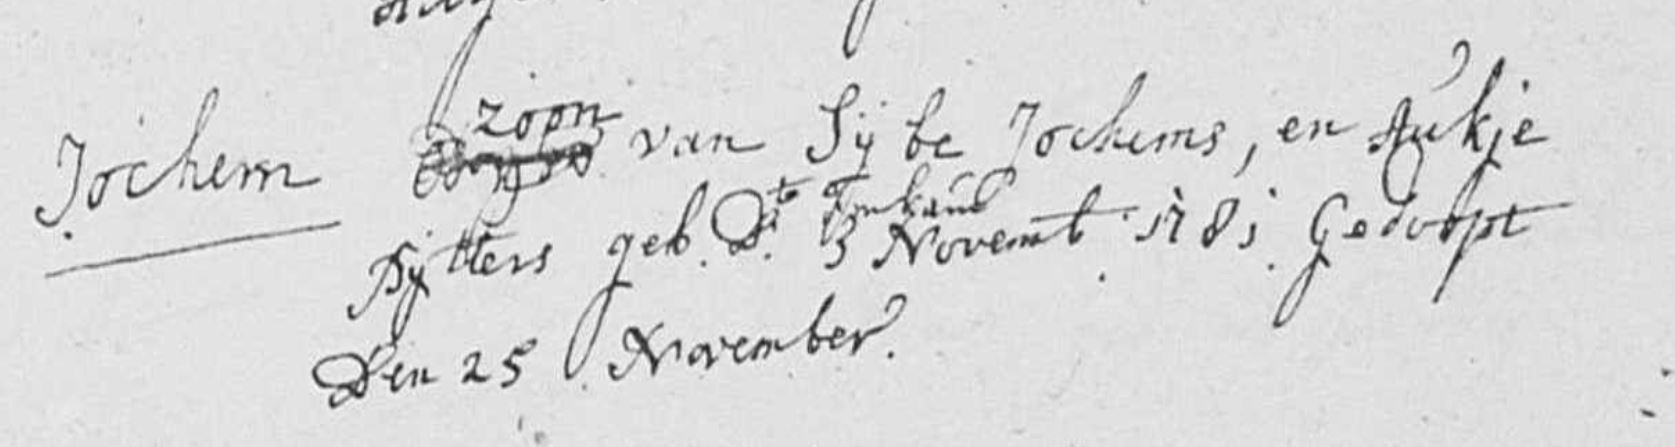 Jochem zoon van Sÿbe Jochems, en Aukje
Rÿtters geb. D. 3 Novemb. 1781. Gedoopt
Den 25 November.